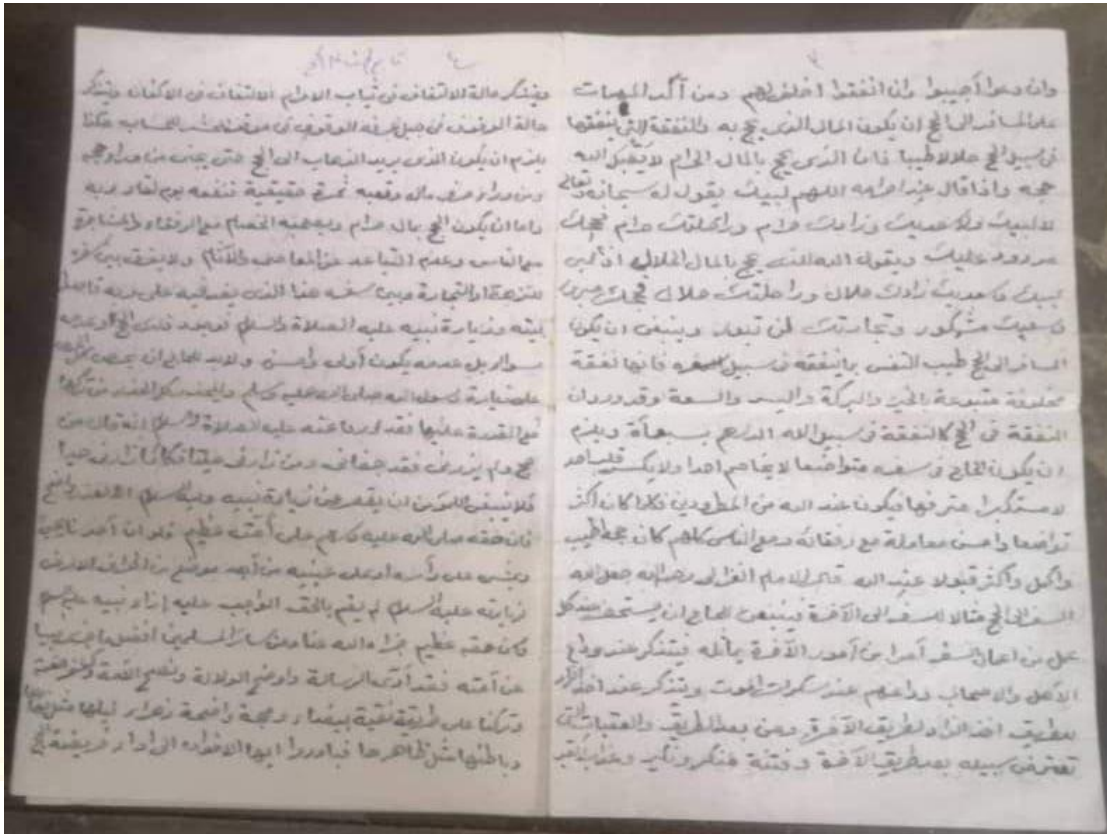 ٣
وان دعوا أجيبوا وان انفقوا أخلف لهم ومن آكد المهمات
على المسافر الى الحج ان يكون المال الذي يحج به والنفقة التي ينفقها
في سبيل الحج حلالا طيبا فان الذي يحج بالمال الحرام لا يقبل الله
حجه واذا قال عند احرامه اللهم لبيك يقول له سبحانه وتعالى
لا لبيك ولا سعديك وزادك حرام وراحلتك حرام فحجك
مردود عليك ويقول الله للذي يحج بالمال الحلال اذا لبى
لبيك وسعديك زادك حلال وراحلتك حلال فحجك مبرور
وسعيك مشكور وتجارتك لن تبور وينبغي ان يكون
المسافر الى الحج طيب النفس بالنفقة في سبيل سفره فانها نفقة
مخلوفة متبوعة بالخير والبركة واليسر والسعة وقد ورد ان
النفقة في الحج كالنفقة في سبيل الله الدرهم بسبعمأة ويلزم
ان يكون الحاج في سفره متواضعا لا يخاصم احدا ولا يكسر قلب احد
لا مستكبرا مترفها فيكون عند الله من المطرودين فكلما كان اكثر
تواضعا واحسن معاملة مع رفقائه ومع الناس كلهم كان حجه اطيب
واكمل وأكثر قبولا عند الله قال الامام الغزالي رحمه الله جعل الله
السفر الى الحج مثالا للسفر الى الآخرة فينبغي للحاج ان يستحضر عند كل
عمل من اعمال السفر أمرا من أمور الآخرة يماثله فيتذكر عند وداع
الأهل والاصحاب وداعهم عند سكرات الموت ويتذكر عند اخذ الزاد
للطريق اخذ الزاد لطريق الآخرة ومن بعد الطريق والعقبات التي
تعترض سبيله بعد طريق الآخرة وفتنة منكر ونكير وعذاب القبر
٤
ويتذكر حالة الالتفاف في ثياب الاحرام الالتفاف في الاكفان ويتذكر
حالة الوقوف في جبل عرفة الوقوف في موقف الحساب هكذا
يلزم ان يكون الذي يريد الذهاب الى الحج حتى يجني من وراء حجه
ومن وراء صرف ماله وتعبه ثمرة حقيقية تنفعه يوم لقاء ربه
واما ان يكون الحج بمال حرام ويصحبه الخصام مع الرفقاء والمشاجرة
مع الناس وعدم التباعد عن المعاصي والآثام ولا يفرق بين سفره
للنزهة او التجارة وبين سفره هذا الذي يفد فيه على ربه قاصدا
بيته وزيارة نبيه عليه الصلاة والسلام فوجود ذلك الحج وعدمه
سواء بل عدمه يكون أولى واحسن ولابد للحاج ان يحرص
على زيارة رسول الله صلى الله عليه وسلم وليحذر كل الحذر من تركها
مع القدرة عليها فقد ورد عنه عليه الصلاة والسلام انه قال من
حج ولم يزرني فقد جفاني ومن زارني ميتا فكأنما زارني حيا
فلا ينبغي للمؤمن ان يقصر عن زيارة نبيه عليه السلام الا لعذر واضح
فان حقه صلى الله عليه وسلم على أمته عظيم فلو ان أحدنا يجيء
ويمشي على رأسه او على عينيه من أبعد موضع من اطراف الارض
لزيارته عليه السلام لم يقم بالحق الواجب عليه إزاء نبيه عليه السلام
فان حقه عظيم جزاه الله عنا وعن سائر المسلمين افضل ما جزى نبيا
عن أمته فقد أدى الرسالة واوضح الدلالة ونصح الأمة وكشف الغمة
وتركنا على طريقة نقية بيضاء ومحجة واضحة زهراء ليلها مثل نهارها
وباطنها مثل ظاهرها فبادروا ايها الاخوان الى اداء فريضة الحج